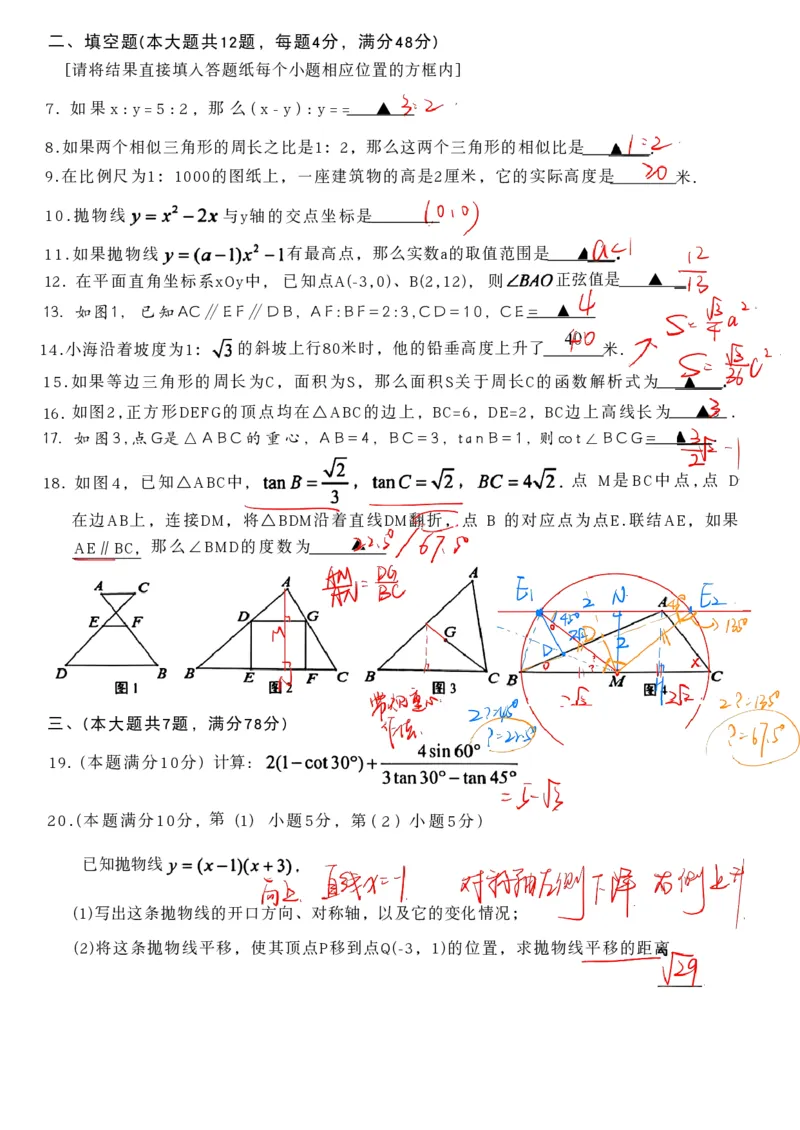 二、填空题(本大题共12题，每题4分，满分48分)
[请将结果直接填入答题纸每个小题相应位置的方框内]
7. 如果x:y=5:2，那么(x-y):y==▲ 3:2
8.如果两个相似三角形的周长之比是1：2，那么这两个三角形的相似比是▲ 1:2.
9.在比例尺为1：1000的图纸上，一座建筑物的高是2厘米，它的实际高度是 20 米.
10.抛物线 y=x²-2x 与y轴的交点坐标是 (0,0)
11.如果抛物线 y=(a-1)x²-1有最高点，那么实数a的取值范围是▲ a<1.
12. 在平面直角坐标系xOy中，已知点A(-3,0)、B(2,12)，则∠BAO正弦值是▲ 12/13
13. 如图1，已知AC∥EF∥DB，AF:BF=2:3,CD=10，CE=▲ 4
S=√3/4 a²
14.小海沿着坡度为1：√3的斜坡上行80米时，他的铅垂高度上升了 40 米.
S=√3/36 C²
15.如果等边三角形的周长为C，面积为S，那么面积S关于周长C的函数解析式为▲.
16.如图2,正方形DEFG的顶点均在△ABC的边上，BC=6，DE=2，BC边上高线长为▲3.
17. 如图3,点G是△ABC的重心，AB=4，BC=3，tanB=1,则cot∠BCG=▲ 3/2 √2 -1
18. 如图4，已知△ABC中，tanB=√2/3，tanC=√2，BC=4√2. 点 M是BC中点,点 D
在边AB上，连接DM，将△BDM沿着直线DM翻折，点 B 的对应点为点E.联结AE，如果
AE∥BC，那么∠BMD的度数为▲ 22.5°/67.5°
AM/AN=DG/BC
A C E F D B 图1
A D G M B E N F C 图2
A G B C 图3
E₁ 2 N A E₂ 45° 45° 135° D 2 B M C 图4 2√2
常规的重心
作法.
2?=45°
?=22.5°
2?=135°
?=67.5°
三、(本大题共7题，满分78分)
19. (本题满分10分) 计算：2(1-cot30°)+4sin60°/(3tan30°-tan45°)
=5-√3
20.(本题满分10分, 第 (1) 小题5分，第(2)小题5分)
已知抛物线 y=(x-1)(x+3).
向上 直线x=-1 对称轴左侧下降 右侧上升
(1)写出这条抛物线的开口方向、对称轴，以及它的变化情况；
(2)将这条抛物线平移，使其顶点P移到点Q(-3，1)的位置，求抛物线平移的距离
√29